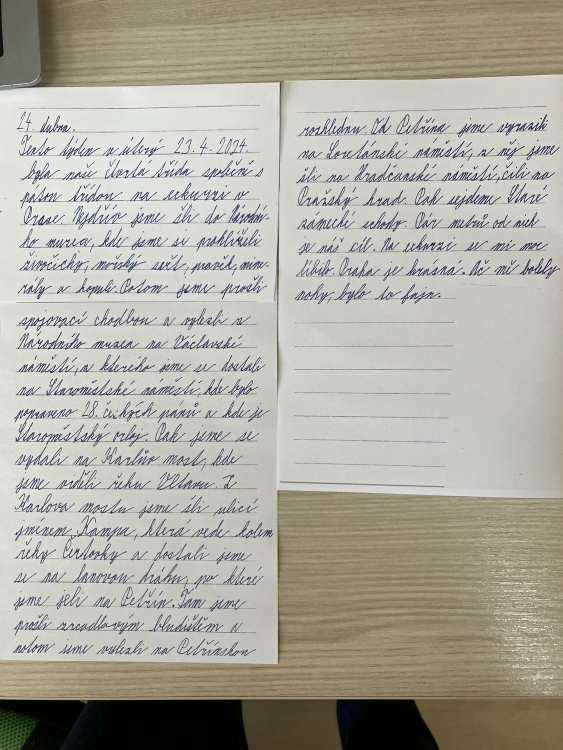 24. dubna.
Tento týden v úterý 23.4.2024
byla naše čtvrtá třída společně s
pátou třídou na exkurzi v
Praze. Nejdřív jsme šli do Národní-
ho muzea, kde jsme si prohlíželi
živočichy, mořský svět, pravěk, mine-
rály a kopuli. Potom jsme prošli
spojovací chodbou a vylezli z
Národního muzea na Václavské
náměstí, z kterého jsme se dostali
na Staroměstské náměstí, kde bylo
popraveno 28. českých pánů a kde je
Staroměstský orloj. Pak jsme se
vydali na Karlův most, kde
jsme viděli řeku Vltavu. Z
Karlova mostu jsme šli ulicí
jménem Kampa, která vede kolem
řeky Čertovky a dostali jsme
se na lanovou dráhu, po které
jsme jeli na Petřín. Tam jsme
prošli zrcadlovým bludištěm a
potom jsme vylezli na Petřínskou
rozhlednu. Od Petřína jsme vyrazili
na Loretánské náměstí, z něj jsme
šli na Hradčanské náměstí, čili na
Pražský hrad. Pak sejdeme Staré
zámecké schody. Pár metrů od nich
je náš cíl. Na exkurzi se mi moc
líbilo. Praha je krásná. Ač mě bolely
nohy, bylo to fajn.